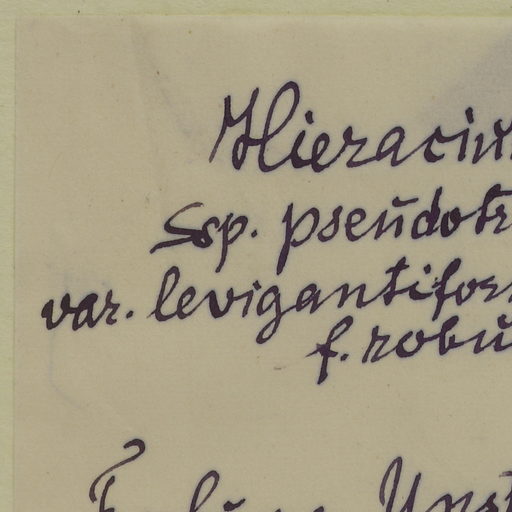 Hieraciu
Ssp. pseudotr
var. levigantifor
f. robu